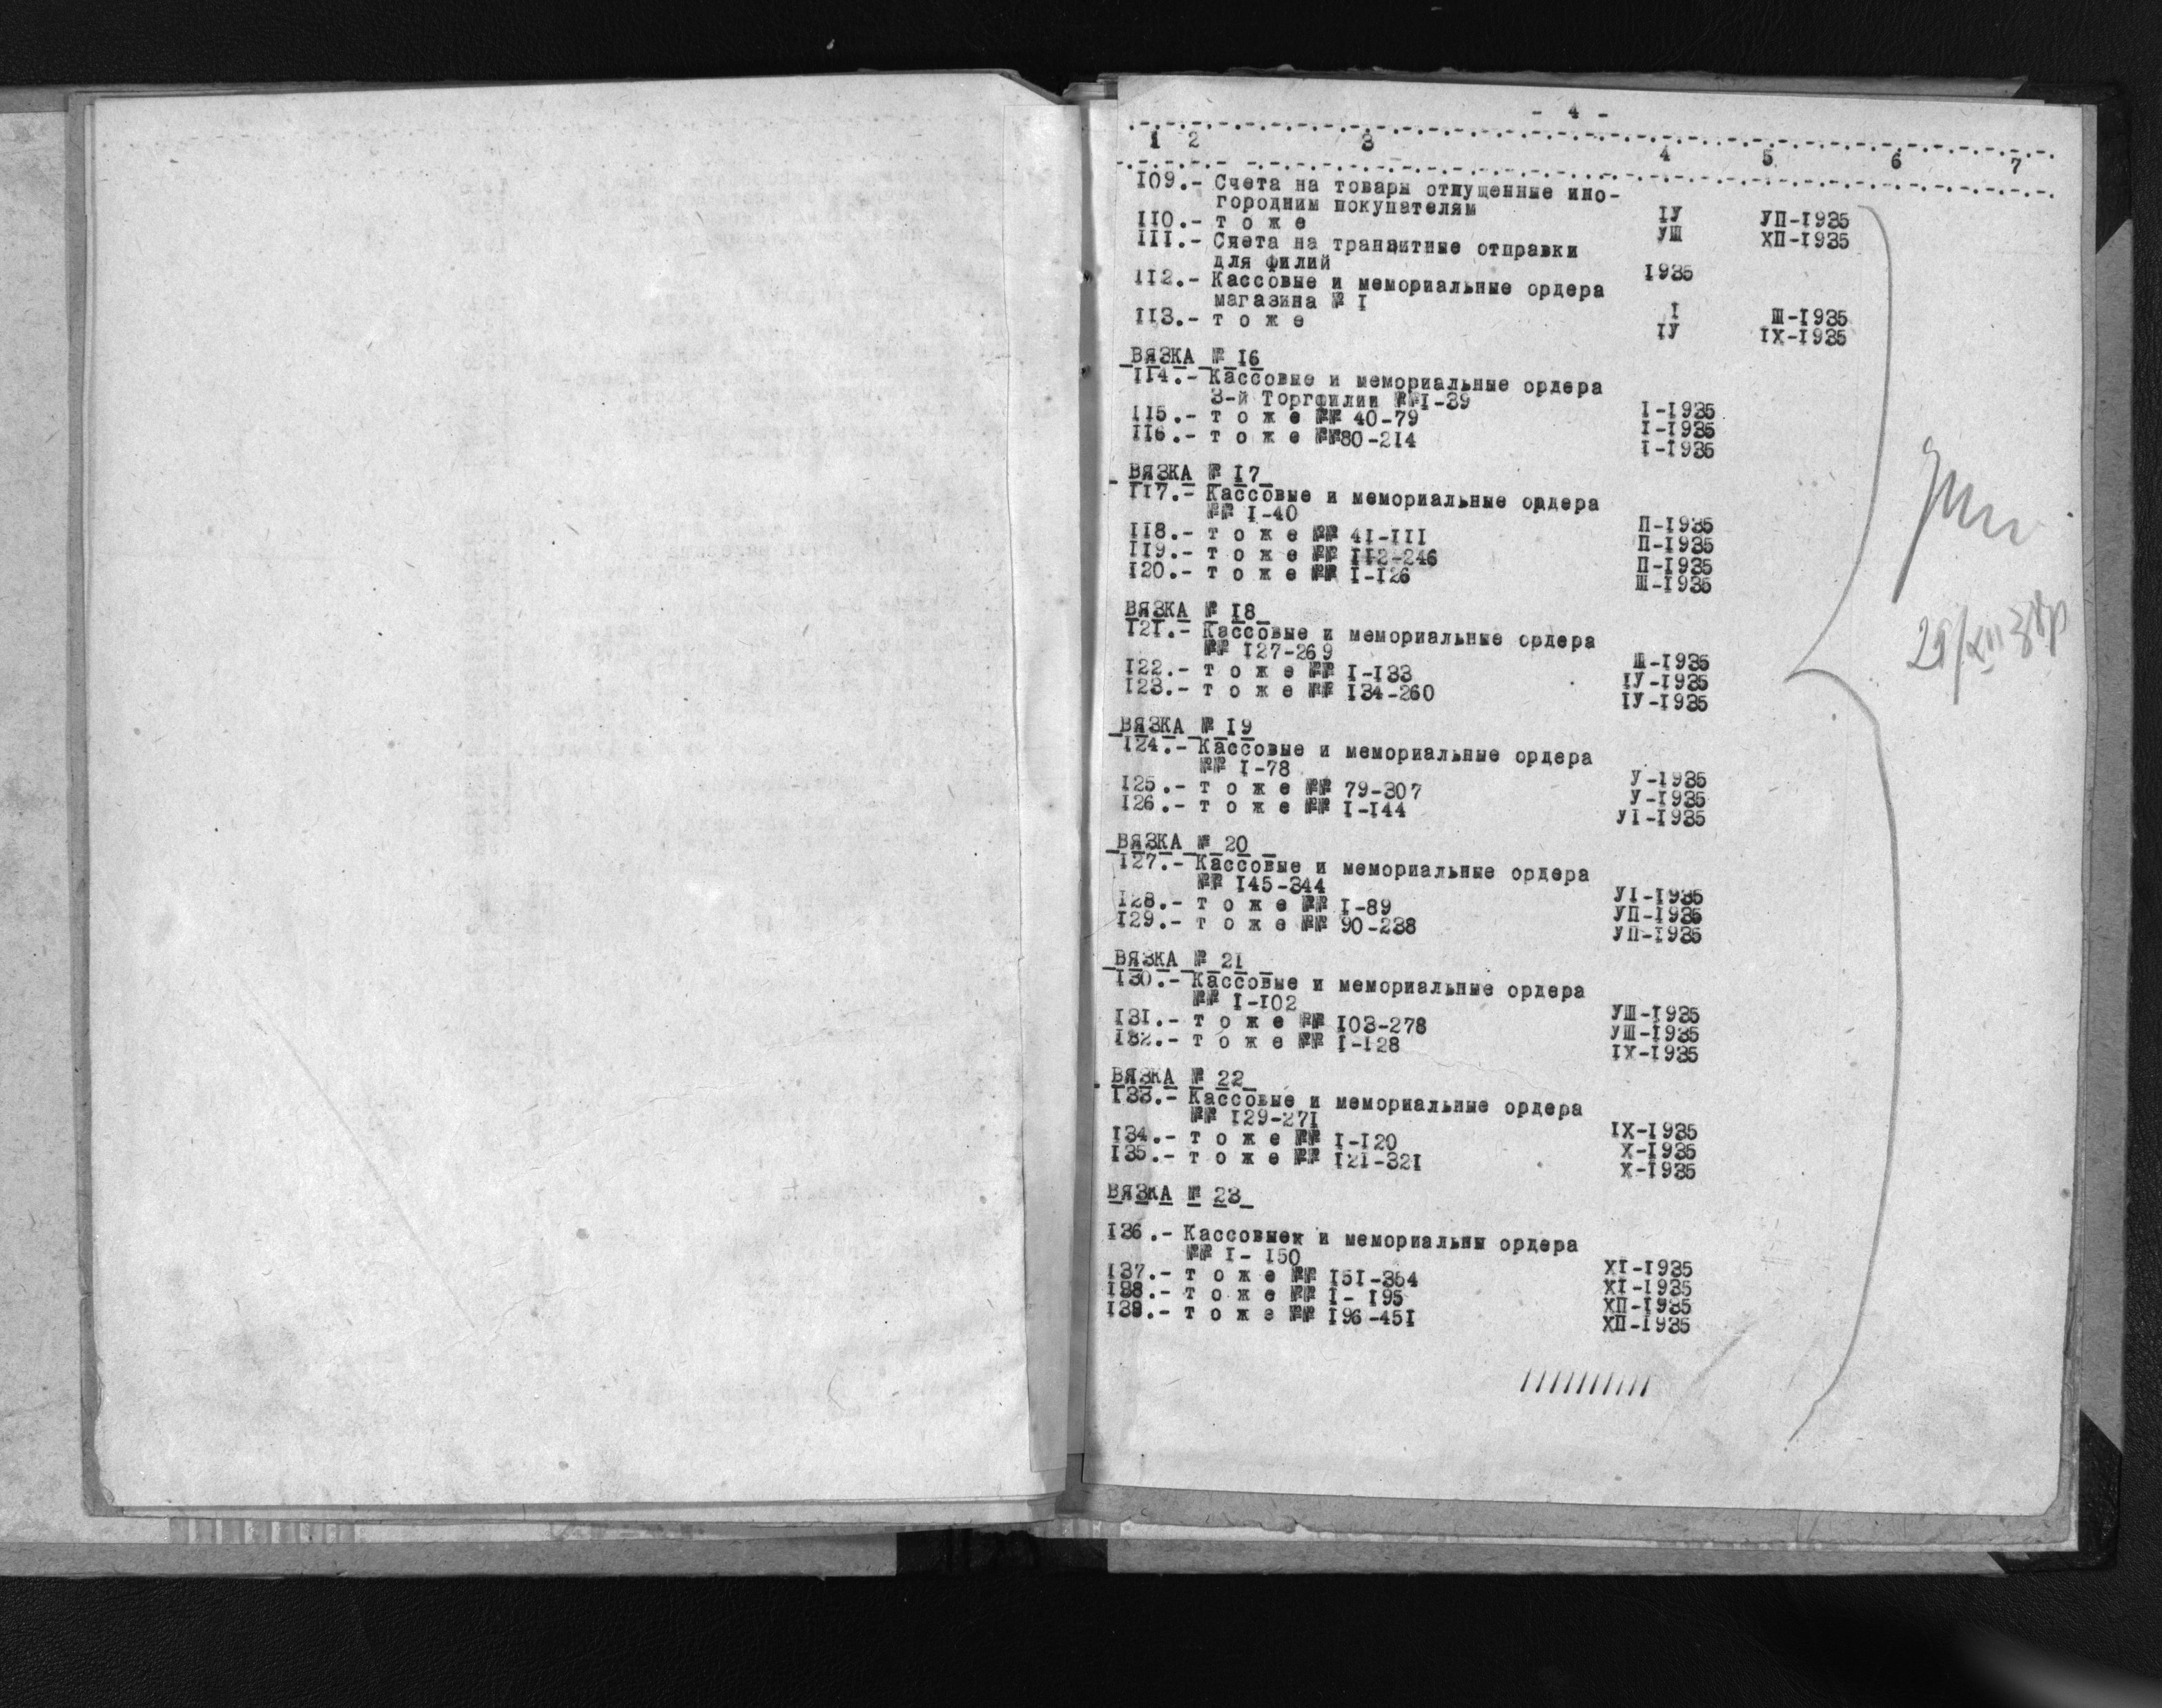 - 4 -
1 2 3 4 5 6 7
I09.- Счета на товары отпущенные ино-
городним покупателям IУ УП-I935
II0.- т о ж е УШ ХП-I935
III.- Счета на транзитные отправки
для филий I935
II2.- Кассовые и мемориальные ордера
магазина № I I Ш-I935
II3.- т о ж е IУ IХ-I935
ВЯЗКА № I6
II4.- Кассовые и мемориальные ордера
3-й Торгфилии №№I-39 I-I935
II5.- т о ж е №№ 40-79 I-I935
II6.- т о ж е №№80-2I4 I-I935
ВЯЗКА № I7
II7.- Кассовые и мемориальные ордера
№№ I-40 П-I935
II8.- т о ж е №№ 4I-III П-I935
II9.- т о ж е №№ II2-246 П-I935
I20.- т о ж е №№ I-I26 Ш-I935
ВЯЗКА № I8
I2I.- Кассовые и мемориальные ордера
№№ I27-269 Ш-I935
I22.- т о ж е №№ I-I33 IУ-I935
I23.- т о ж е №№ I34-260 IУ-I935
ВЯЗКА № I9
I24.- Кассовые и мемориальные ордера
№№ I-78 У-I935
I25.- т о ж е №№ 79-307 У-I935
I26.- т о ж е №№ I-I44 УI-I935
ВЯЗКА № 20
I27.- Кассовые и мемориальные ордера
№№ I45-344 УI-I935
I28.- т о ж е №№ I-89 УП-I935
I29.- т о ж е №№ 90-238 УП-I935
ВЯЗКА № 2I
I30.- Кассовые и мемориальные ордера
№№ I-I02 УШ-I935
I3I.- т о ж е №№ I03-278 УШ-I935
I32.- т о ж е №№ I-I28 IХ-I935
ВЯЗКА № 22
I33.- Кассовые и мемориальные ордера
№№ I29-27I IХ-I935
I34.- т о ж е №№ I-I20 Х-I935
I35.- т о ж е №№ I2I-32I Х-I935
ВЯЗКА № 23
I36.- Кассовыек и мемориальны ордера
№№ I- I50 ХI-I935
I37.- т о ж е №№ I5I-364 ХI-I935
I38.- т о ж е №№ I- I95 ХП-I935
I39.- т о ж е №№ I96-45I ХП-I935
//////////